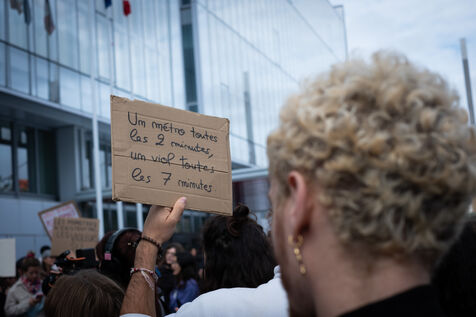 Un métro toutes
les 2 minutes,
un viol toutes
les 7 minutes